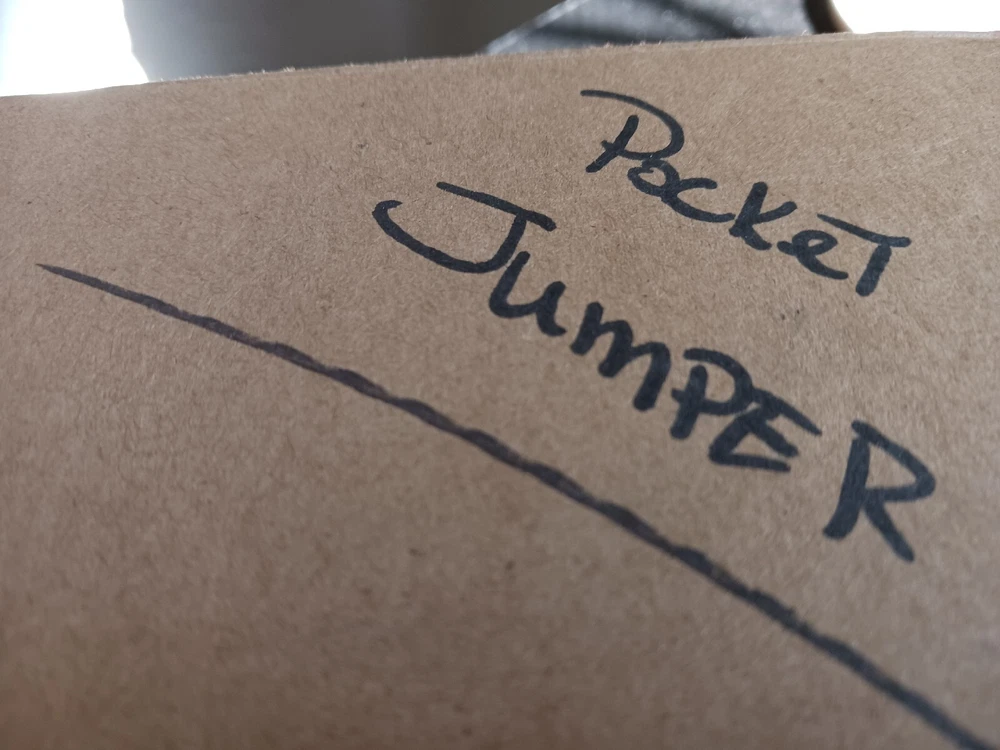 PockeT
JumPER